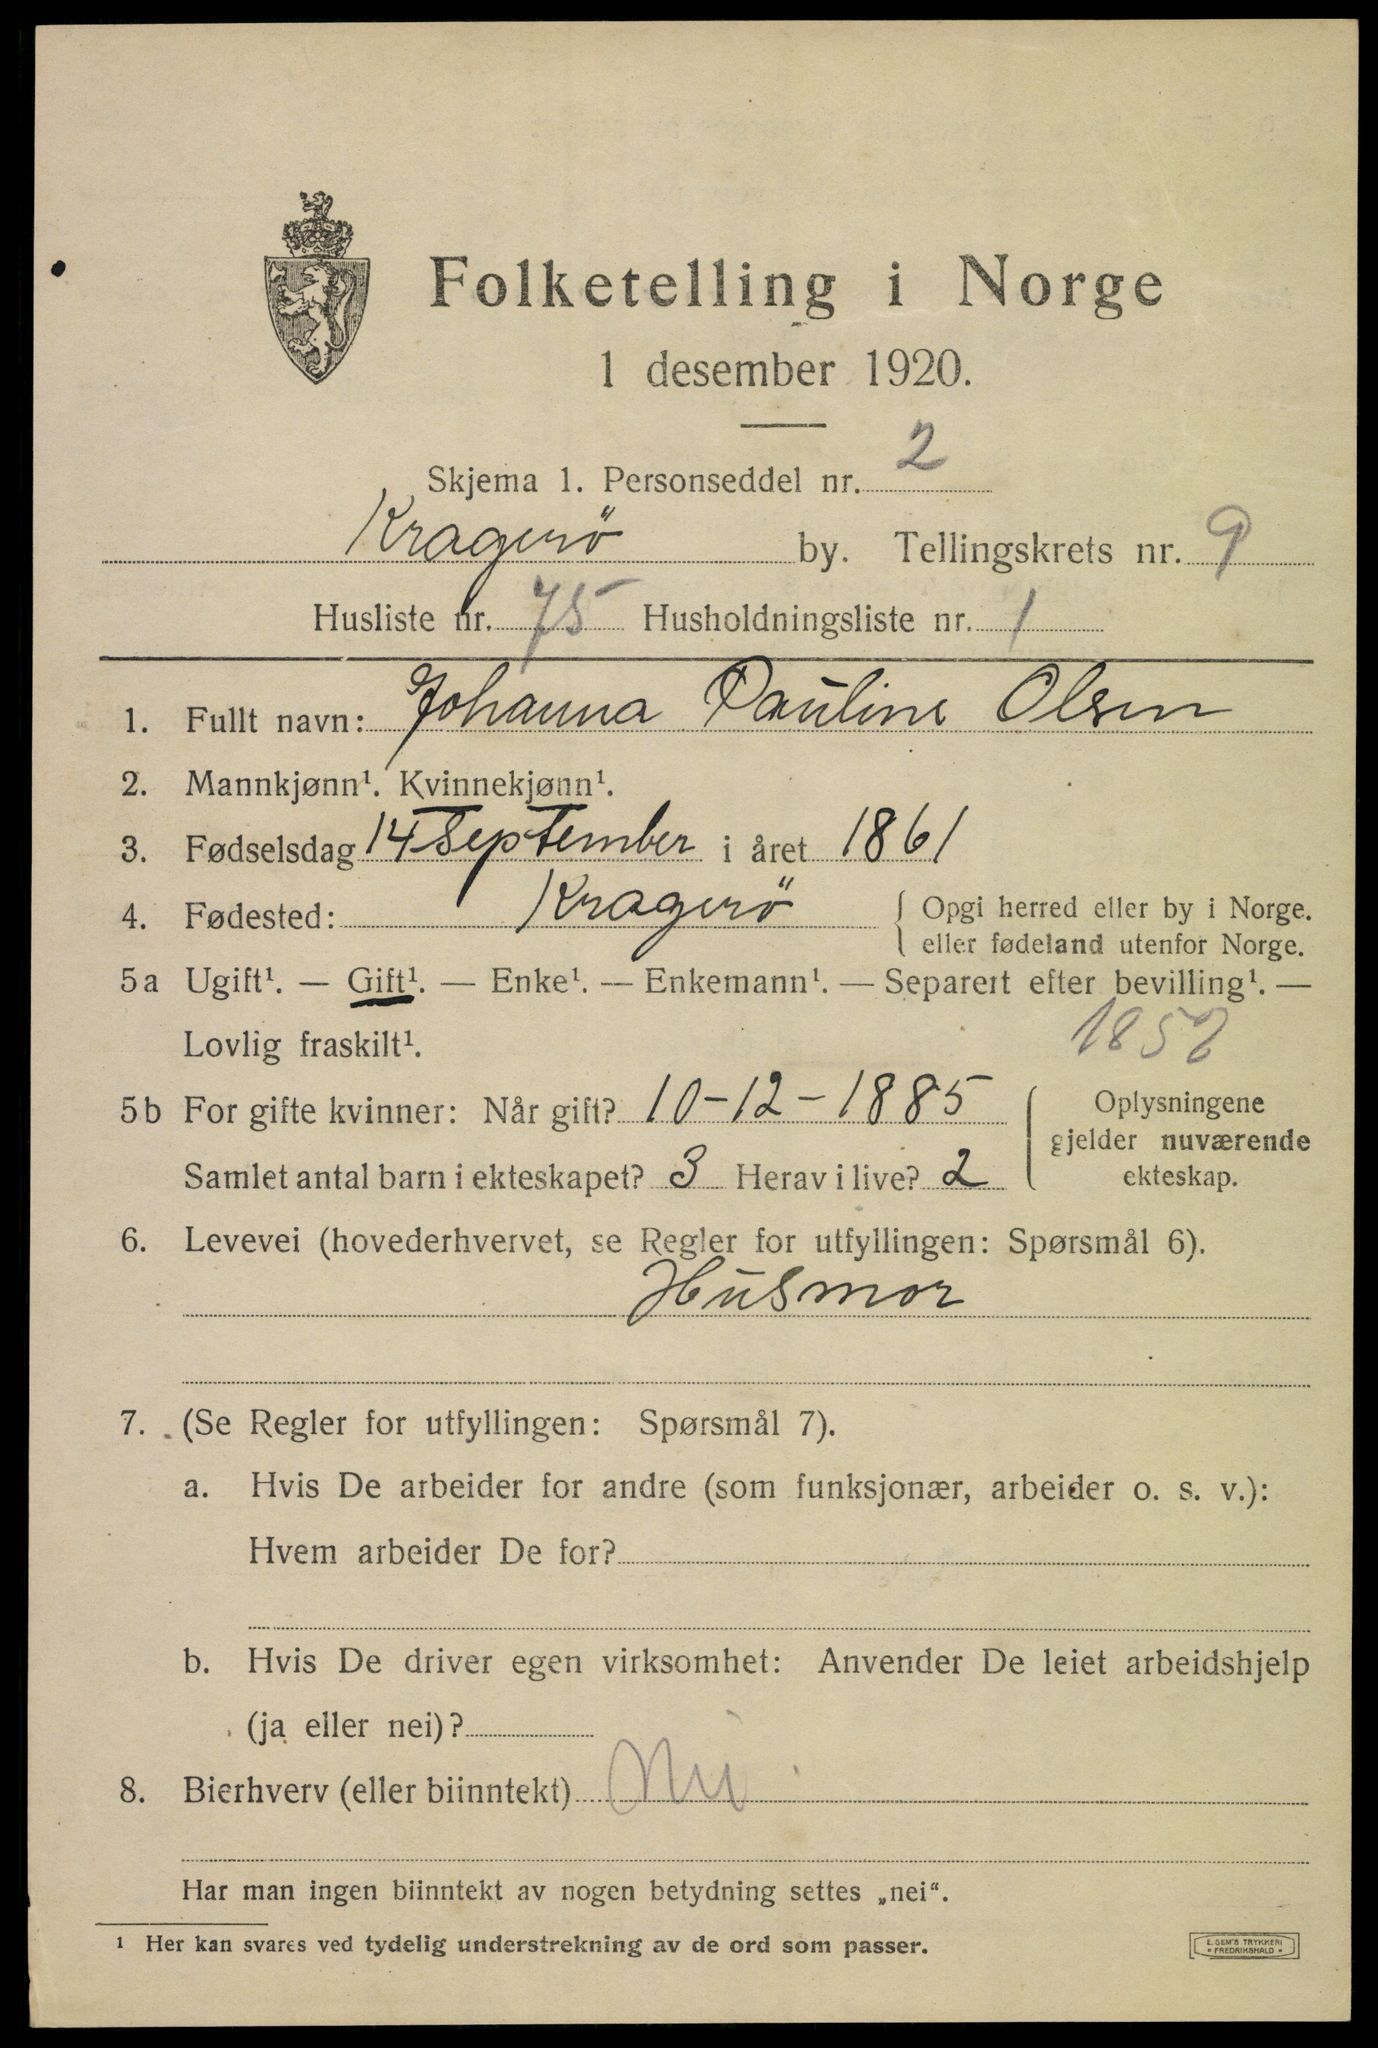 Folketelling i Norge
1 desember 1920.
Skjema 1. Personseddel nr. 2
Kragerö by. Tellingskrets nr. 9
Husliste nr. 75 Husholdningsliste nr. 1
1. Fullt navn: Johanna Pauline Olsen
2. Mannkjønn¹. Kvinnekjønn¹.
3. Fødselsdag 14 September i året 1861
4. Fødested: Kragerö { Opgi herred eller by i Norge.
eller fødeland utenfor Norge.
5a Ugift¹. — Gift¹. — Enke¹. — Enkemann¹. — Separert efter bevilling¹. —
Lovlig fraskilt¹.
5b For gifte kvinner: Når gift? 10-12-1885
Samlet antal barn i ekteskapet? 3 Herav i live? 2
Oplysningene
gjelder nuværende
ekteskap.
6. Levevei (hovederhvervet, se Regler for utfyllingen: Spørsmål 6).
Husmor
7. (Se Regler for utfyllingen: Spørsmål 7).
a. Hvis De arbeider for andre (som funksjonær, arbeider o. s. v.):
Hvem arbeider De for?
b. Hvis De driver egen virksomhet: Anvender De leiet arbeidshjelp
(ja eller nei)?
8. Bierhverv (eller biinntekt) Nei
Har man ingen biinntekt av nogen betydning settes „nei“.
¹ Her kan svares ved tydelig understrekning av de ord som passer.
E. SEM'S TRYKKERI
FREDRIKSHALD